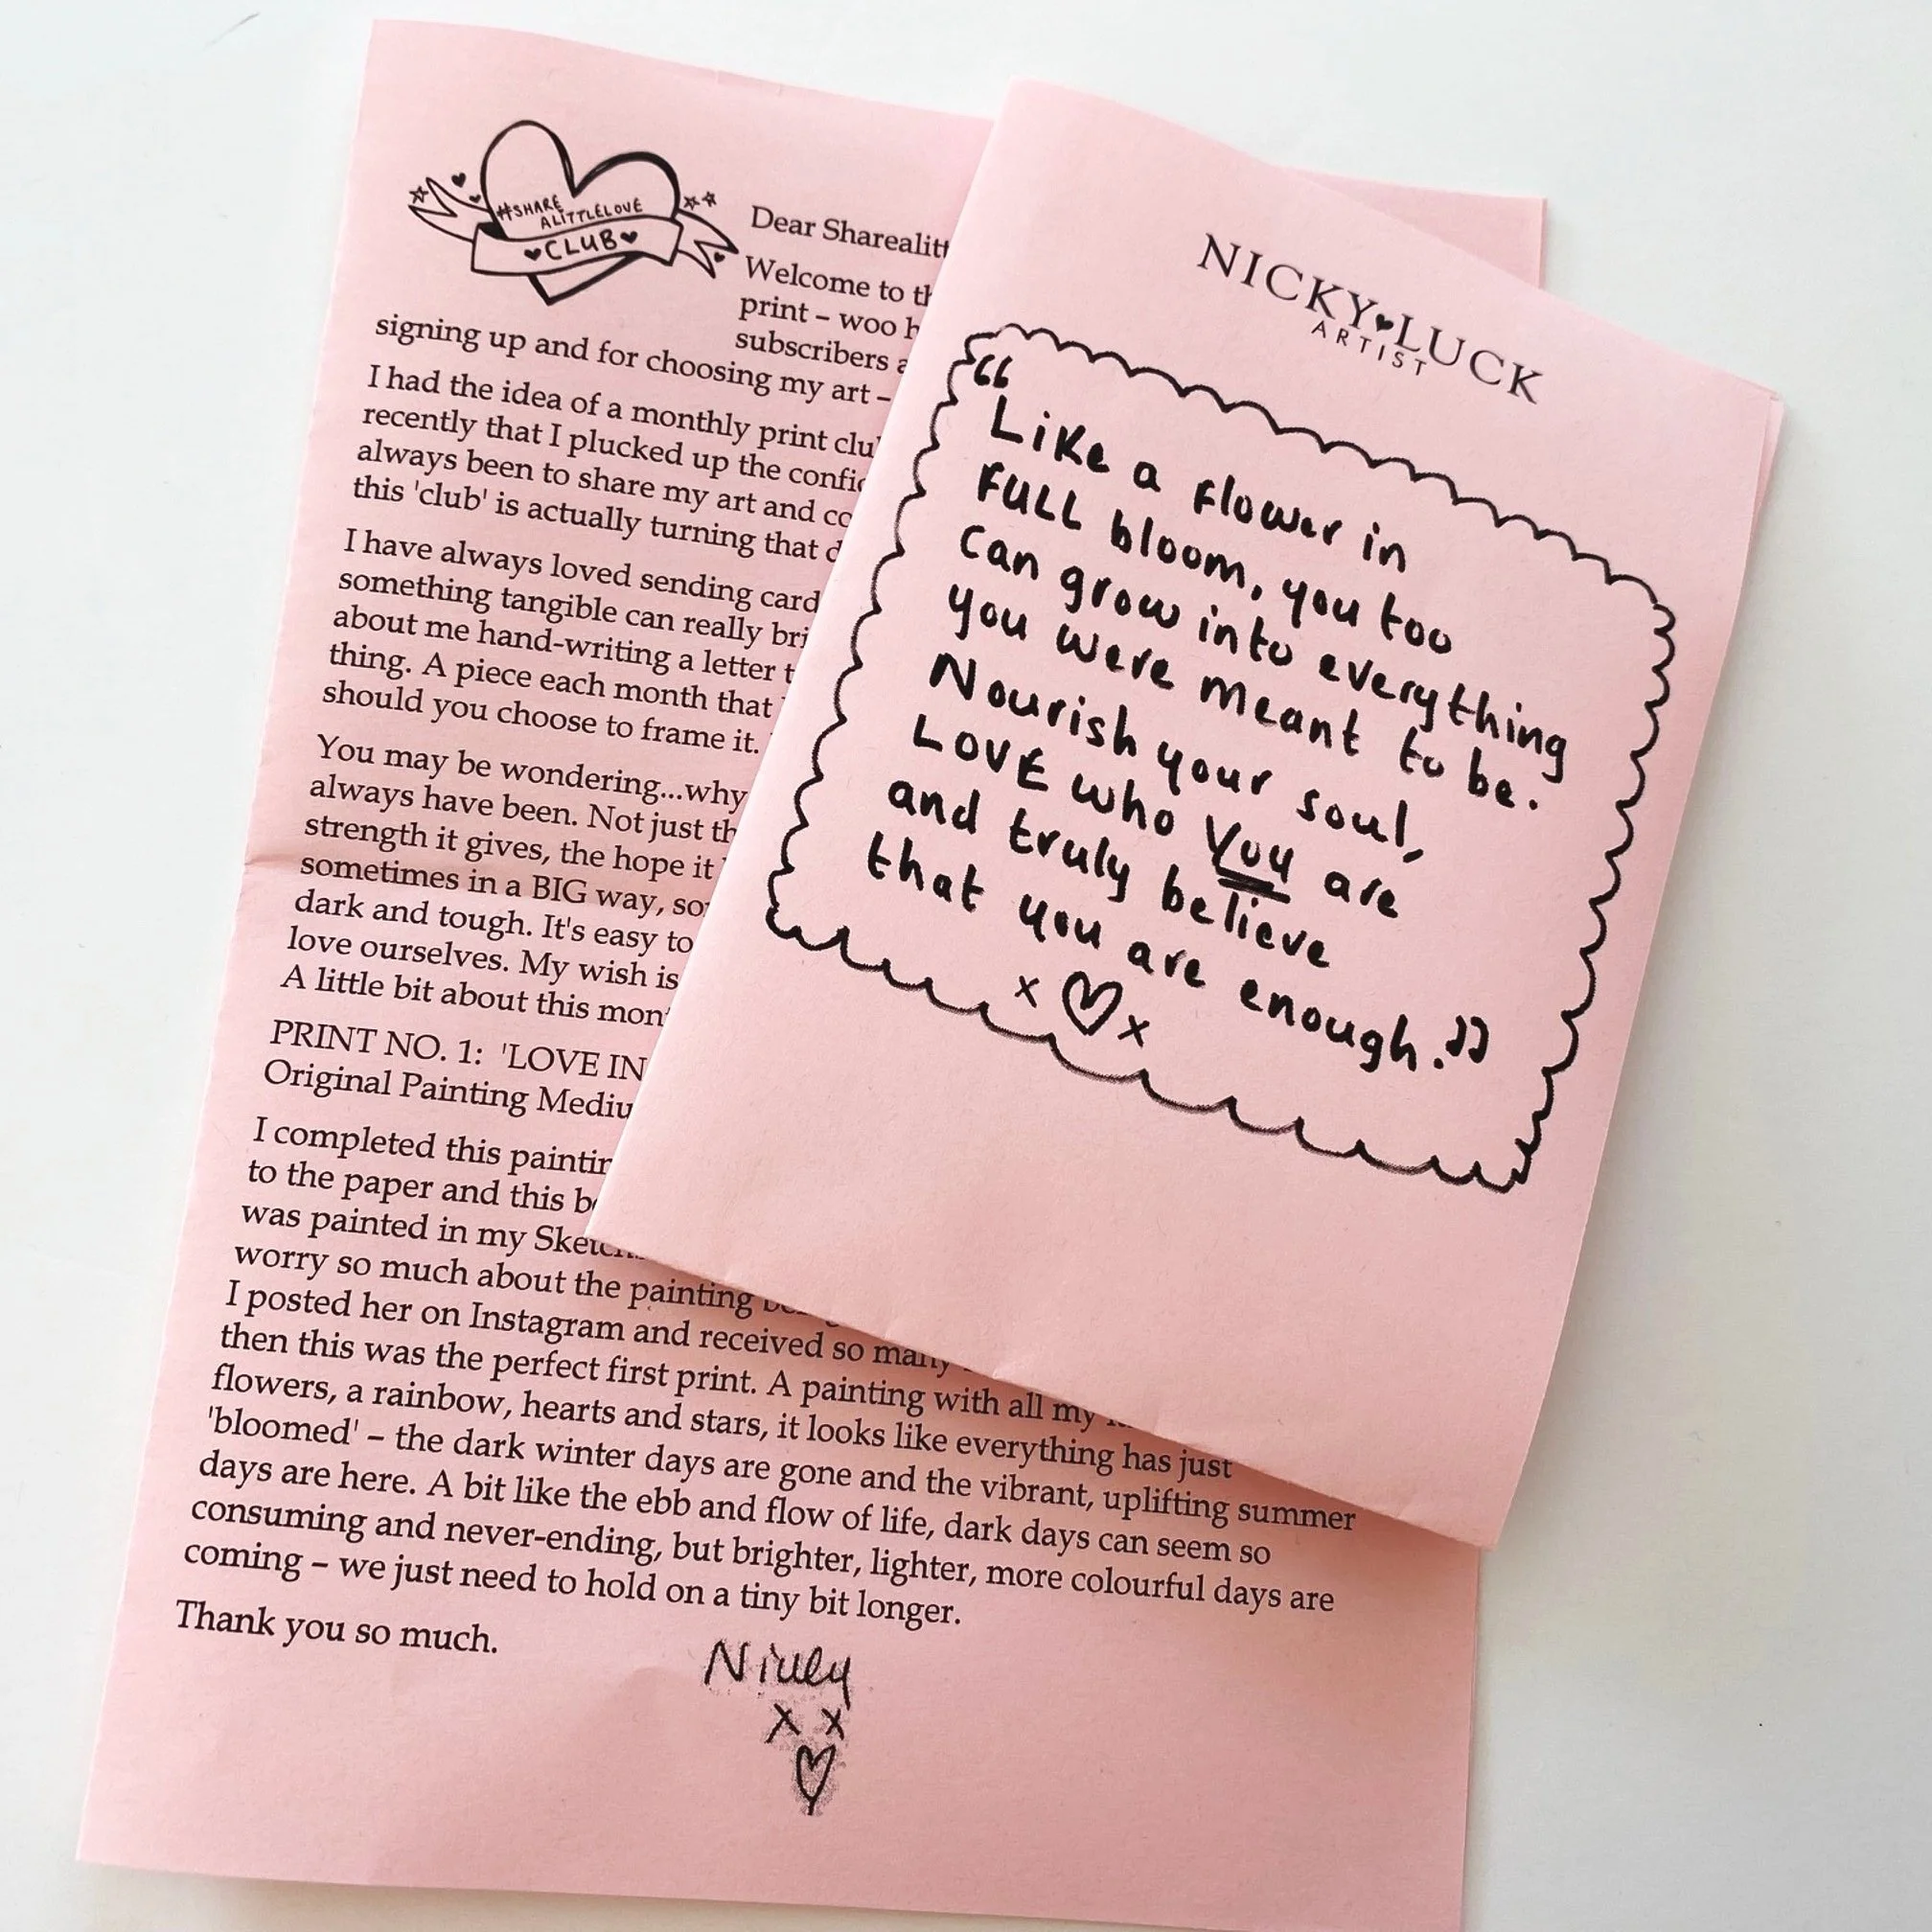 #SHARE
ALITTLELOVE
CLUB
Dear Sharealitt
Welcome to th
print – woo h
subscribers a
signing up and for choosing my art –
I had the idea of a monthly print clu
recently that I plucked up the confid
always been to share my art and co
this 'club' is actually turning that d
I have always loved sending card
something tangible can really bri
about me hand-writing a letter t
thing. A piece each month that
should you choose to frame it.
You may be wondering...why
always have been. Not just th
strength it gives, the hope it
sometimes in a BIG way, so
dark and tough. It's easy to
love ourselves. My wish is
A little bit about this mon
PRINT NO. 1: 'LOVE IN
Original Painting Mediu
I completed this paintin
to the paper and this be
was painted in my Sketch
worry so much about the painting
I posted her on Instagram and received so many
then this was the perfect first print. A painting with all my
flowers, a rainbow, hearts and stars, it looks like everything has just
'bloomed' – the dark winter days are gone and the vibrant, uplifting summer
days are here. A bit like the ebb and flow of life, dark days can seem so
consuming and never-ending, but brighter, lighter, more colourful days are
coming – we just need to hold on a tiny bit longer.
Thank you so much.
Nicky
x x
NICKY LUCK
ARTIST
“Like a flower in
FULL bloom, you too
can grow into everything
you were meant to be.
Nourish your soul,
LOVE who YOU are
and truly believe
that you are enough.”
x x